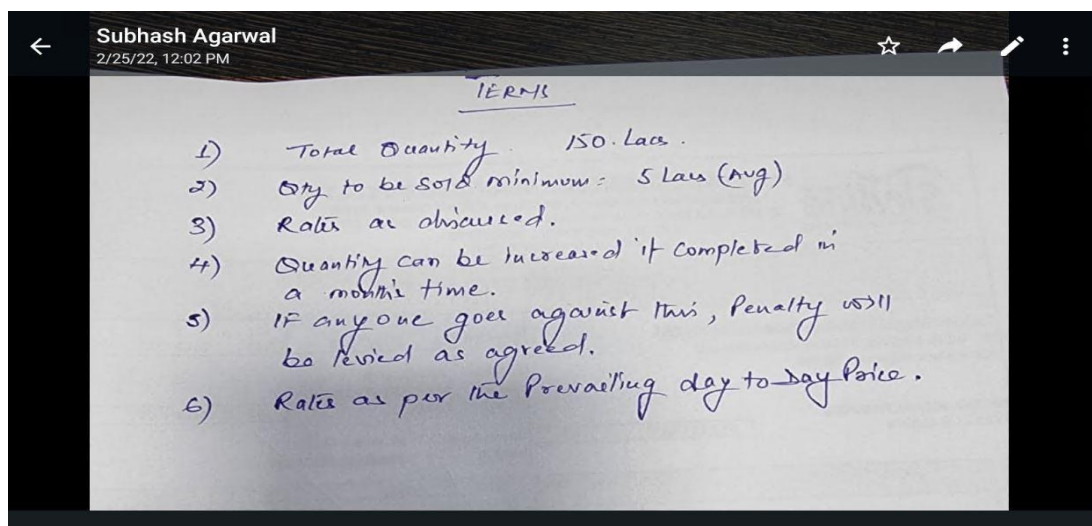 Subhash Agarwal
2/25/22, 12:02 PM
TERMS
1) Total Quantity. 150. Lacs.
2) Qty to be sold minimum = 5 Lacs (Avg)
3) Rates as discussed.
4) Quantity can be increased if completed in
a month's time.
5) If anyone goes against this, Penalty will
be levied as agreed.
6) Rates as per the Prevailing day to Day Price.